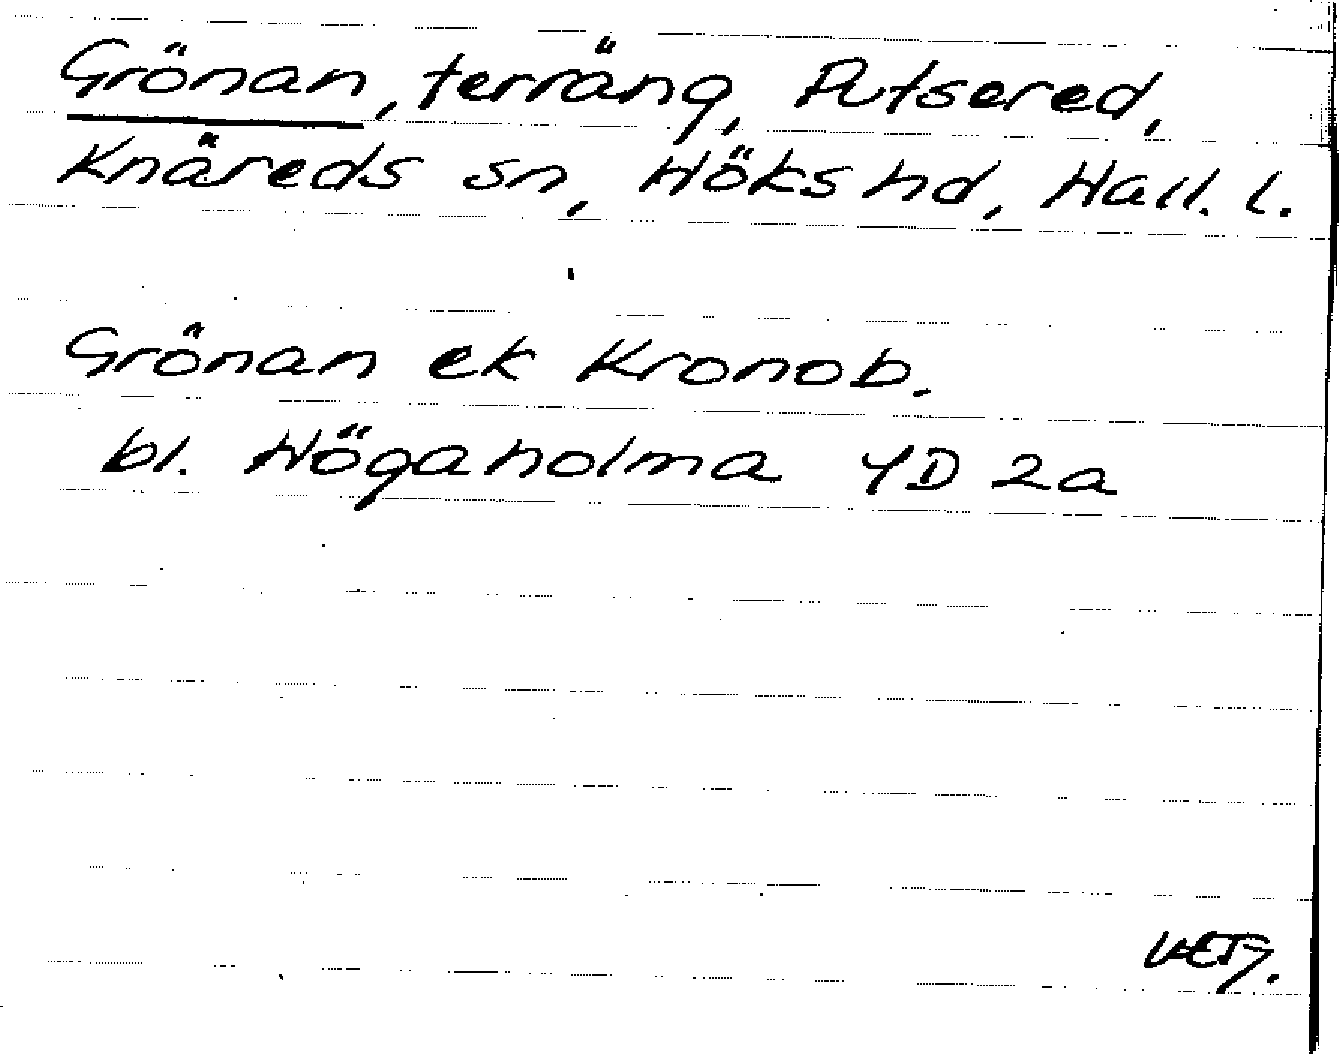 Grönan, terräng, Putsered,
Knäreds sn, Höks hd, Hall. l.
Grönan ek Kronob.
bl. Högaholma 4D 2a